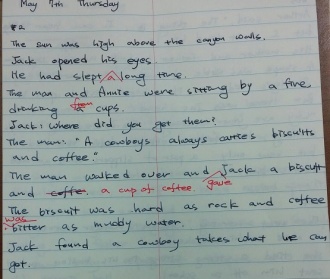 May 7th Thursday
#2
The sun was high above the canyon walls.
Jack opened his eyes
He had slept a long time.
The man and Annie were sitting by a fire
drinking from cups.
Jack: Where did you get them?
The man: "A cowboys always carries biscuits
and coffee."
The man walked over and gave Jack a biscuit
and coffe. a cup of coffee.
The biscuit was hard as rock and coffee
was bitter as muddy water.
Jack found a cowboy takes what he can
get.